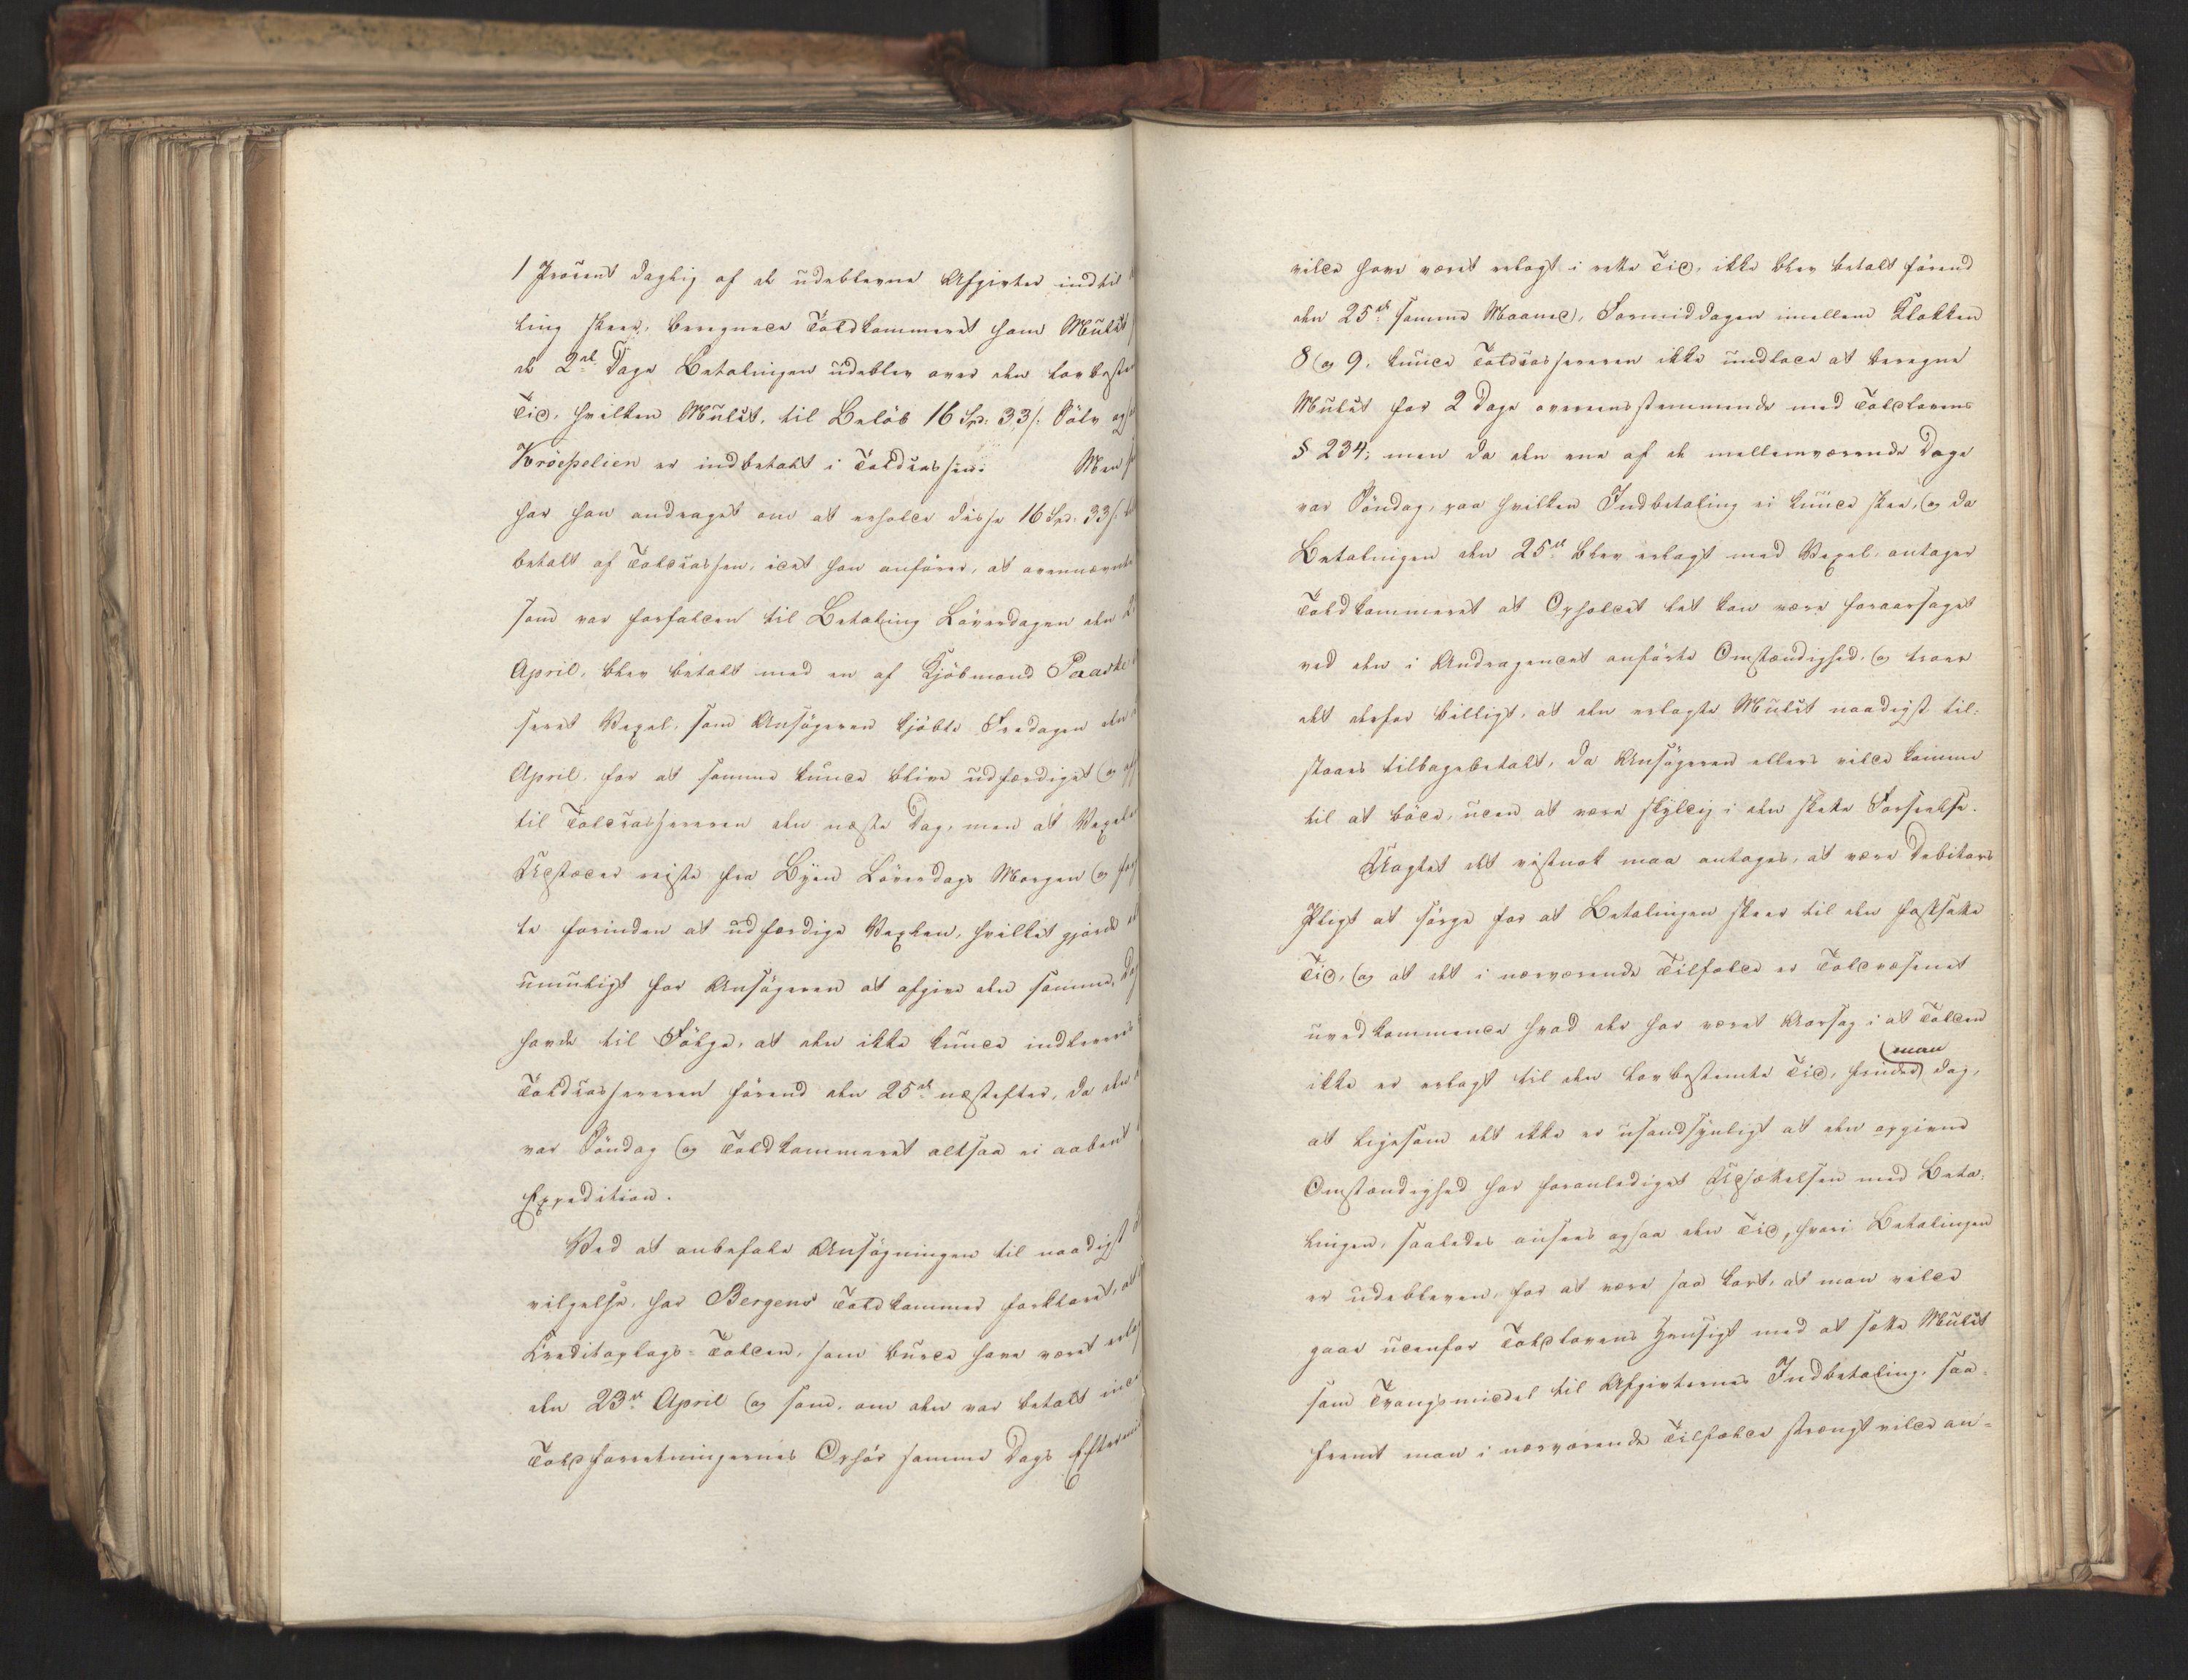 1 Procent daglig af de udeblevne Afgivter indtil
ling skeer, beregnede Toldkammeret som Mulct
de 2de Dage Betalingen udeblev over den lovbeste
Tid, hvilken Mulct, til Beløb 16 Spd: 33 s. Sølv og
Kröepelien er indbetalt i Toldcassen. Men
har han andraget om at erholde disse 16 Spd. 33 s.
betalt af Toldcassen, idet han anfører, at ovennævnte
som var forfalden til Betaling Løverdagen den
April, blev betalt med en af Kjøbmand Paaske
seret Vexel, som Ansøgeren kjøbte Fredagen den
April, for at samme kunde blive udfærdiget og
til Toldcassereren den næste Dag, men at Vexel
Udstæder reiste fra Byen Løverdags Morgen og
te forinden at udfærdige Vexlen, hvilket gjorde
umuligt for Ansøgeren at afgive den samme Dag
havde til Følge, at den ikke kunde indleveres
Toldcassereren førend den 25de næstefter, da den
var Søndag og Toldkammeret altsaa ei aabent
Expedition.
Ved at anbefale Ansøgningen til naadigst
vilgelse, har Bergens Toldkammer forklaret, at
Creditoplags-Tolden, som burde have været erlag
den 23de April og som, om den var betalt inde
Toldforretningernes Ophør samme Dags Eftermid
vilde have været erlagt i rette Tid, ikke blev betalt førend
den 25de samme Maaned, Formiddagen imellem Klokken
8 og 9, kunde Toldcassereren ikke undlade at beregne
Mulct for 2 Dage overeensstemmende med Toldlovens
§ 234; men da den ene af de mellemværende Dage
var Søndag, paa hvilken Indbetaling ei kunde skee, og da
Betalingen den 25de blev erlagt med Vexel, antager
Toldkammeret at Opholdet let kan være foraarsaget
ved den i Andragendet anførte Omstændighed, og troer
det derfor billigt, at den erlagte Mulct naadigst til-
staaes tilbagebetalt, da Ansøgeren ellers vilde komme
til at bøde, uden at være skyldig i den skete Forseelse.
Uagtet det vistnok maa antages, at være Debitors
Pligt at sørge for at Betalingen skeer til den fastsatte
Tid, og at det i nærværende Tilfælde er Toldvæsenet
uvedkommende hvad der har været Aarsag i at Tolden
man
ikke er erlagt til den lovbestemte Tid, finder dog,
at ligesom det ikke er usandsynligt at den opgivne
Omstændighed har foranlediget Udsættelsen med Beta-
lingen, saaledes ansees ogsaa den Tid, hvori Betalingen
er udebleven, for at være saa kort, at man vilde
gaae udenfor Toldlovens Hensigt med at sætte Mulct
som Tvangsmiddel til Afgivternes Indbetaling, saa-
fremt man i nærværende Tilfælde strængt vilde an-